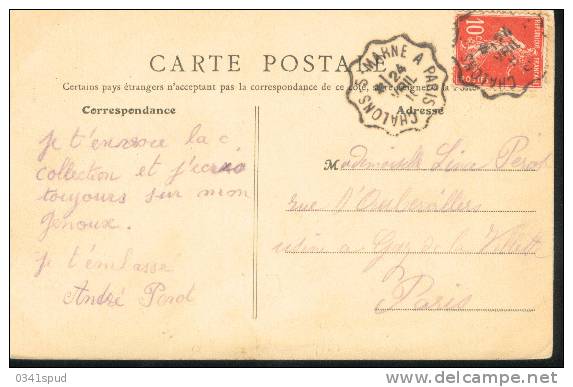 CARTE POSTALE
Certains pays étrangers n'acceptant pas la correspondance de ce côté, se renseigner à la Poste
Correspondance
Adresse
CHALONS S MARNE A PARIS
24
JUIL
REPUBLIQUE FRANÇAISE
10
POSTES
CHALONS
je t'envoie la c
collection et j'écris
toujours sur mon
genoux.
je t'embrasse
André Perot
Mademoiselle Perot
rue d'Aubervilliers
usine a Gaz de la Villette
Paris
0341spud
delcampe.net